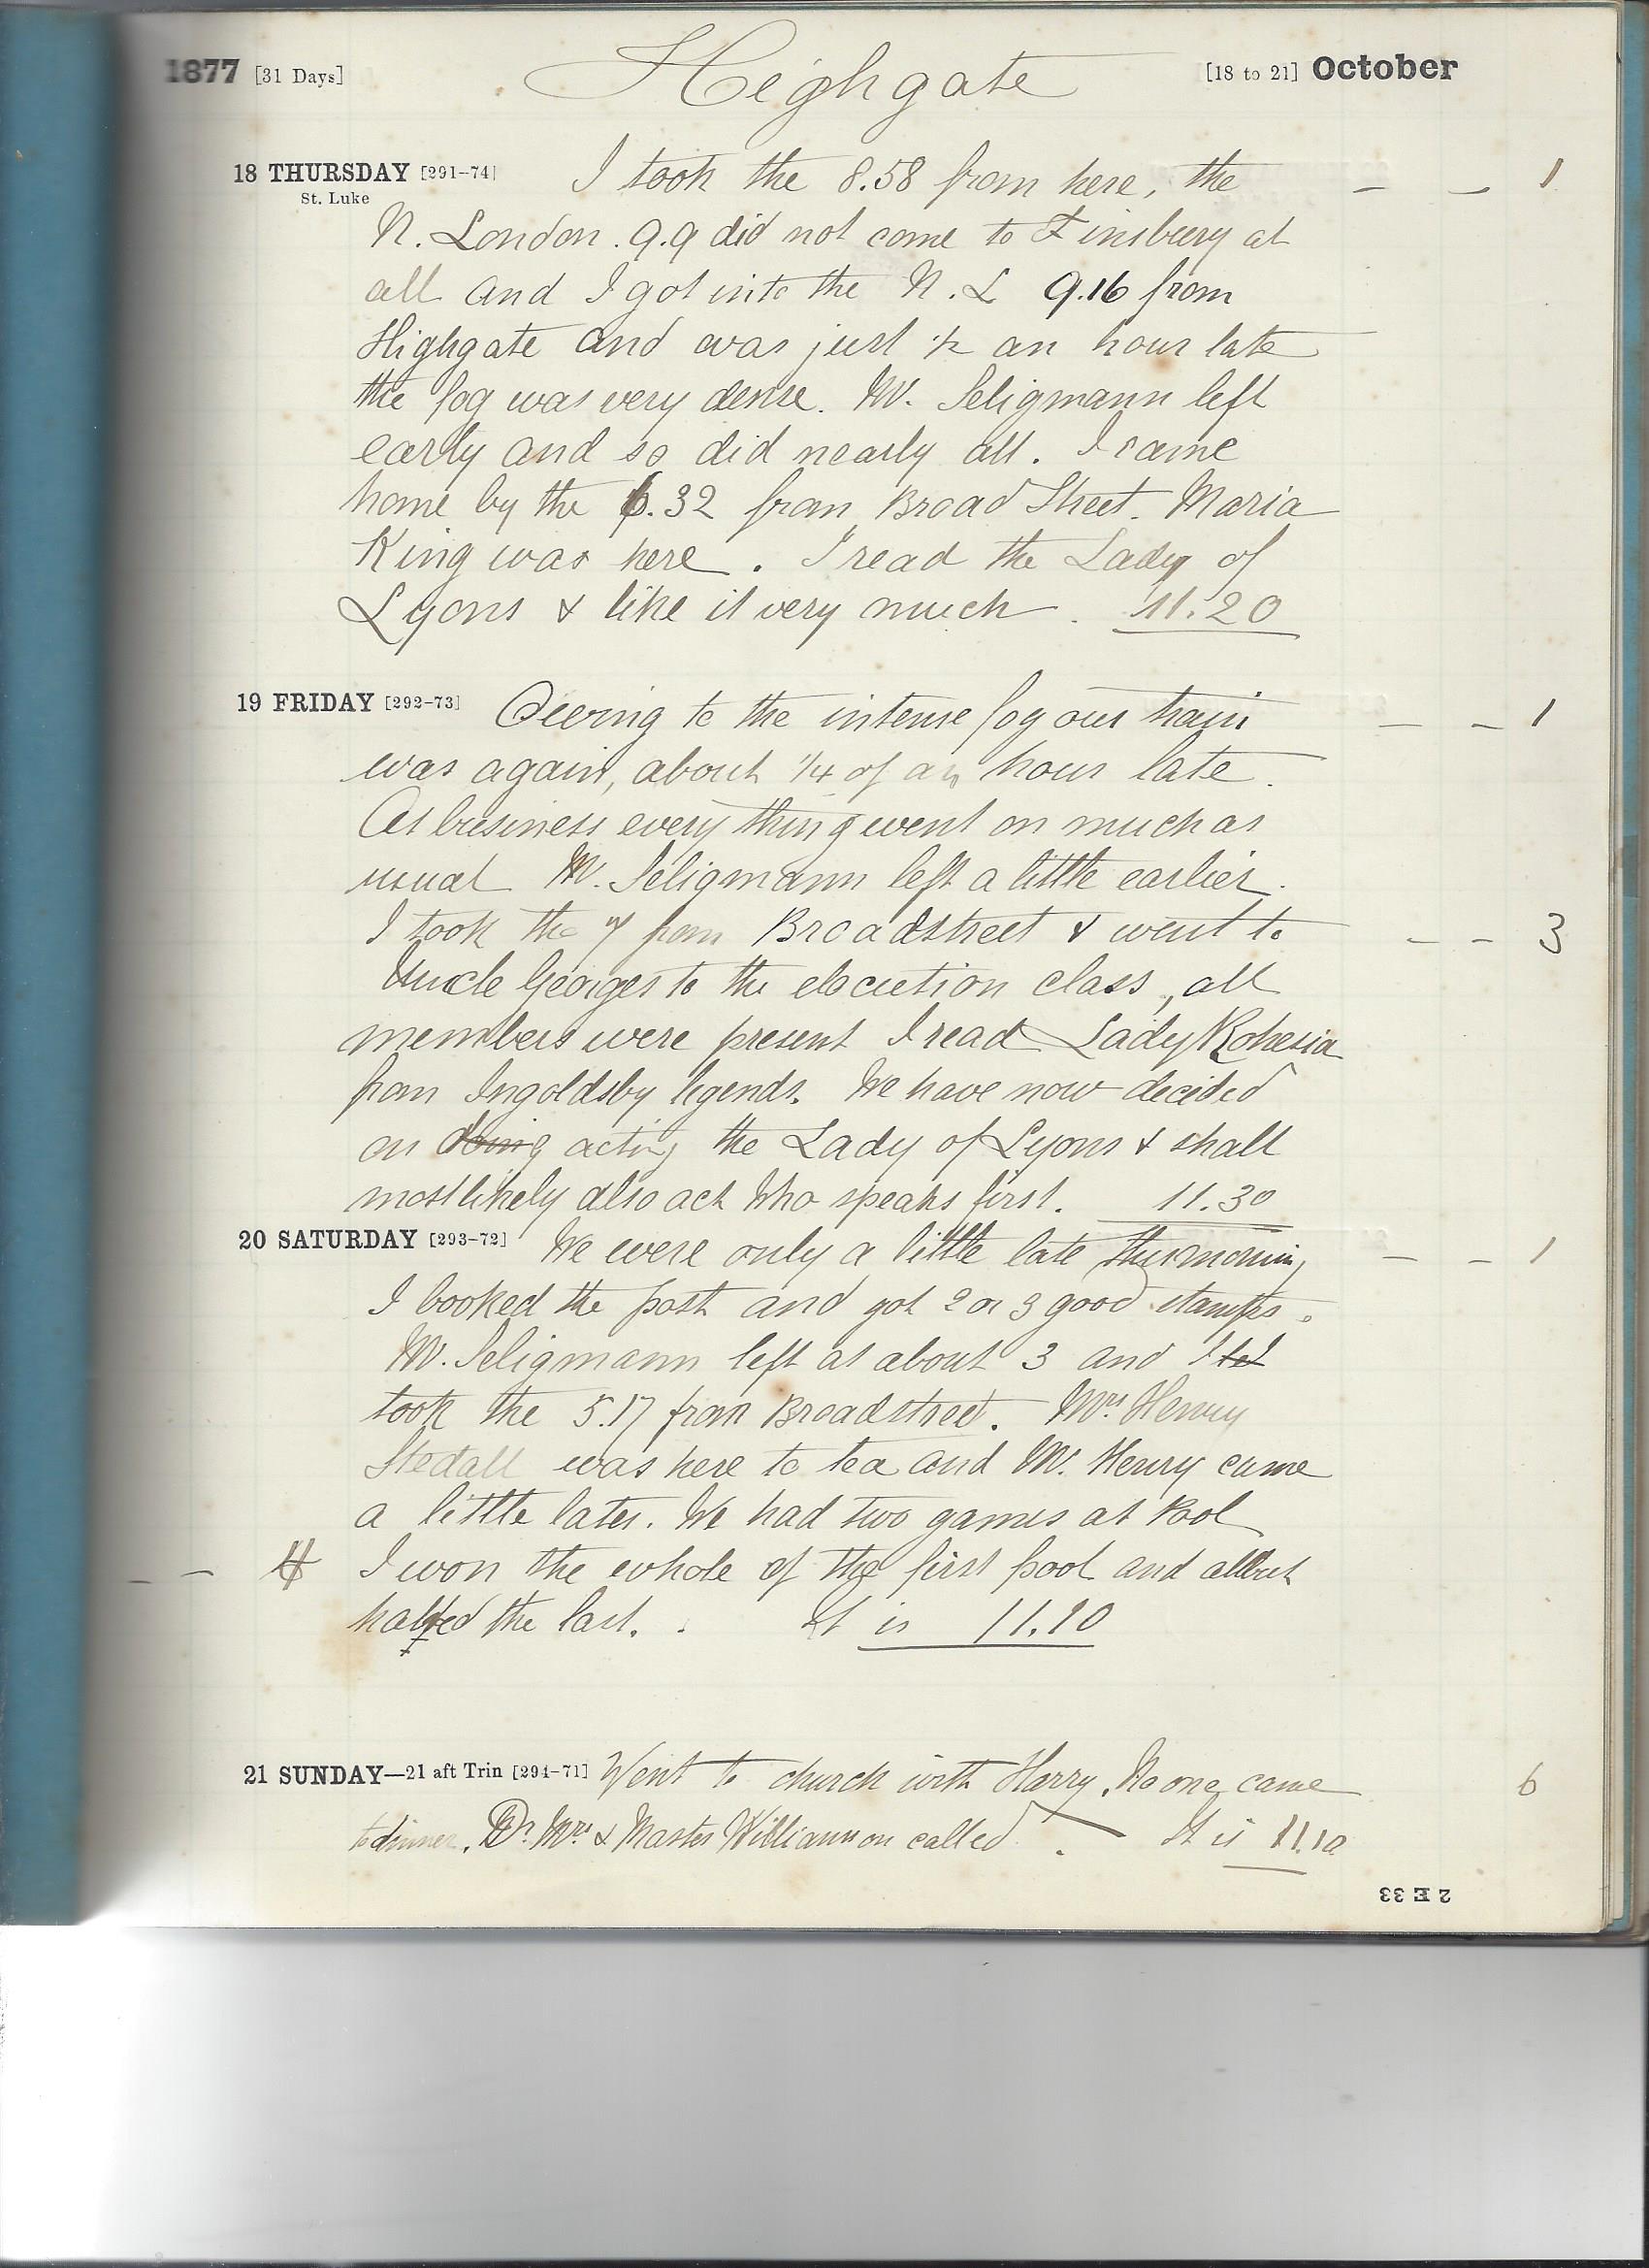 1877 [31 Days] Highgate [18 to 21] October
18 THURSDAY [291-74] I took the 8.58 from here, the - - 1
St. Luke
N. London. 9.9 did not come to Finsbury at
all and I got into the N. L 9.16 from
Highgate and was just 1/2 an hour late
the fog was very dense. Mr. Seligmann left
early and so did nearly all. I came
home by the 6.32 from Broad Street. Maria
King was here. I read the Lady of
Lyons & like it very much. 11.20
19 FRIDAY [292-73] Oweing to the intense fog our train - - 1
was again, about 1/4 of an hour late.
At business every thing went on much as
usual Mr. Seligmann left a little earlier.
I took the 7 from Broadstreet & went to - - 3
Uncle Georges to the elocution class, all
members were present I read Lady Rohesia
from Ingoldsby legends. We have now decided
on doing acting the Lady of Lyons & shall
mostlikely also act Who speaks first. 11.30
20 SATURDAY [293-72] We were only a little late this morning - - 1
I booked the post and got 2 or 3 good stamps.
Mr. Seligmann left at about 3 and I
took the 5.17 from Broadstreet. Mrs Henry
Stedall was here to tea and Mr. Henry came
a little later. We had two games at Pool
- - 4 I won the whole of the first pool and albut
halfed the last. It is 11.10
21 SUNDAY—21 aft Trin [294-71] Went to church with Harry. No one came 6
to dinner. Dr. Mrs & Master Williamson called. It is 11.10
2 E 33